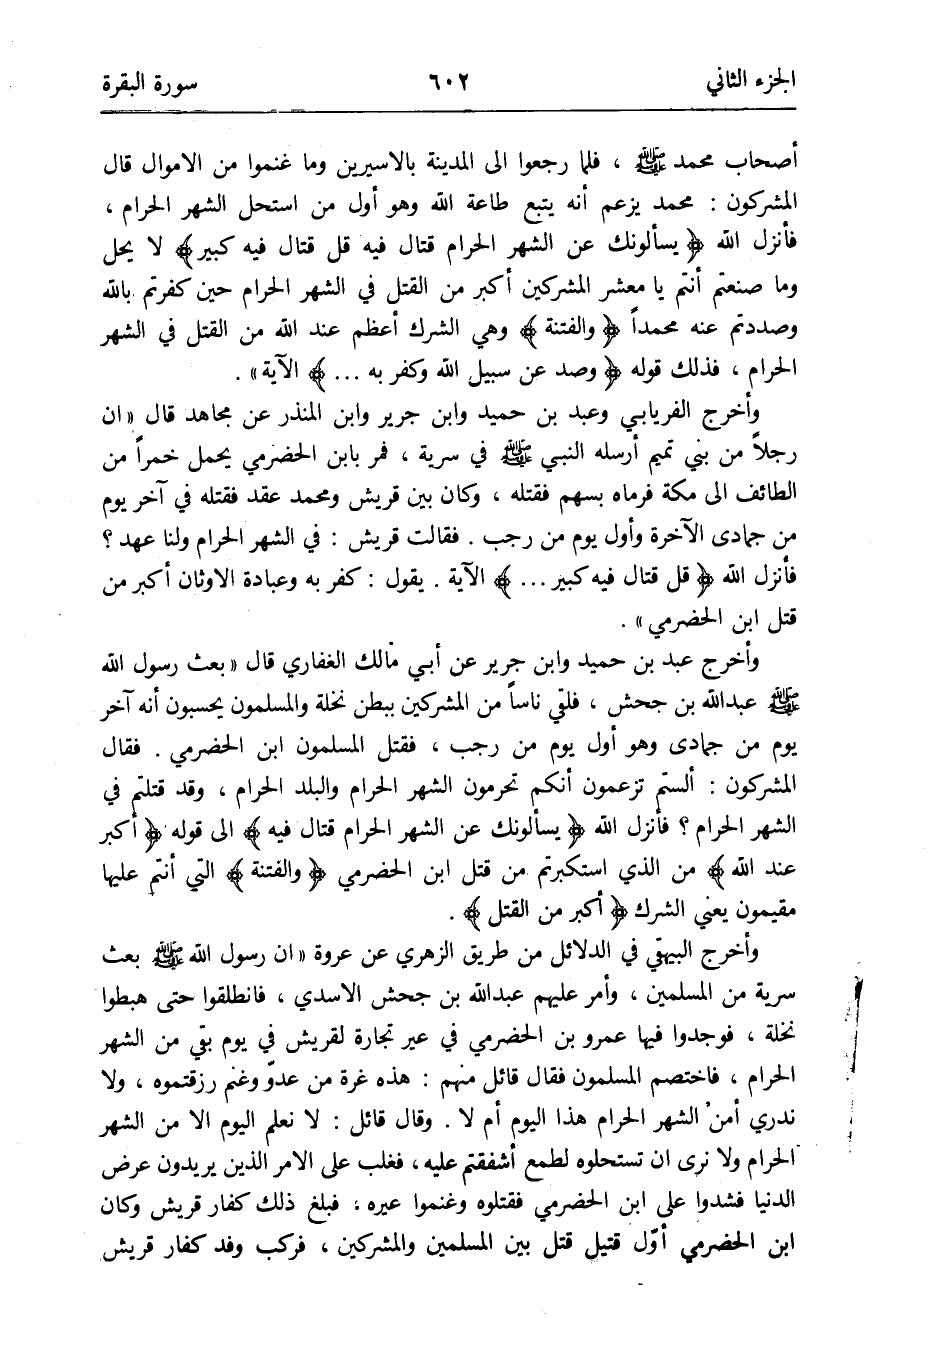 الجزء الثاني ٦٠٢ سورة البقرة
أصحاب محمد ﷺ ، فلما رجعوا الى المدينة بالاسيرين وما غنموا من الاموال قال
المشركون : محمد يزعم أنه يتبع طاعة الله وهو أول من استحل الشهر الحرام ،
فأنزل الله ﴿ يسألونك عن الشهر الحرام قتال فيه قل قتال فيه كبير ﴾ لا يحل
وما صنعتم أنتم يا معشر المشركين أكبر من القتل في الشهر الحرام حين كفرتم بالله
وصددتم عنه محمداً ﴿ والفتنة ﴾ وهي الشرك أعظم عند الله من القتل في الشهر
الحرام ، فذلك قوله ﴿ وصد عن سبيل الله وكفر به ... ﴾ الآية » .
وأخرج الفريابي وعبد بن حميد وابن جرير وابن المنذر عن مجاهد قال « ان
رجلاً من بني تميم أرسله النبي ﷺ في سرية ، فمر بابن الحضرمي يحمل خمراً من
الطائف الى مكة فرماه بسهم فقتله ، وكان بين قريش ومحمد عقد فقتله في آخر يوم
من جمادى الآخرة وأول يوم من رجب . فقالت قريش : في الشهر الحرام ولنا عهد ؟
فأنزل الله ﴿ قل قتال فيه كبير ... ﴾ الآية . يقول : كفر به وعبادة الاوثان أكبر من
قتل ابن الحضرمي » .
وأخرج عبد بن حميد وابن جرير عن أبي مالك الغفاري قال « بعث رسول الله
ﷺ عبدالله بن جحش ، فلقي ناساً من المشركين ببطن نخلة والمسلمون يحسبون أنه آخر
يوم من جمادى وهو أول يوم من رجب ، فقتل المسلمون ابن الحضرمي . فقال
المشركون : ألستم تزعمون أنكم تحرمون الشهر الحرام والبلد الحرام ، وقد قتلتم في
الشهر الحرام ؟ فأنزل الله ﴿ يسألونك عن الشهر الحرام قتال فيه ﴾ الى قوله ﴿ أكبر
عند الله ﴾ من الذي استكبرتم من قتل ابن الحضرمي ﴿ والفتنة ﴾ التي أنتم عليها
مقيمون يعني الشرك ﴿ أكبر من القتل ﴾ .
وأخرج البيهقي في الدلائل من طريق الزهري عن عروة « ان رسول الله ﷺ بعث
سرية من المسلمين ، وأمر عليهم عبدالله بن جحش الاسدي ، فانطلقوا حتى هبطوا
نخلة ، فوجدوا فيها عمرو بن الحضرمي في عير تجارة لقريش في يوم بقي من الشهر
الحرام ، فاختصم المسلمون فقال قائل منهم : هذه غرة من عدوّ وغنم رزقتموه ، ولا
ندري أمن الشهر الحرام هذا اليوم أم لا . وقال قائل : لا نعلم اليوم الا من الشهر
الحرام ولا نرى ان تستحلوه لطمع أشفقتم عليه ، فغلب على الامر الذين يريدون عرض
الدنيا فشدوا على ابن الحضرمي فقتلوه وغنموا عيره ، فبلغ ذلك كفار قريش وكان
ابن الحضرمي أوّل قتيل قتل بين المسلمين والمشركين ، فركب وفد كفار قريش